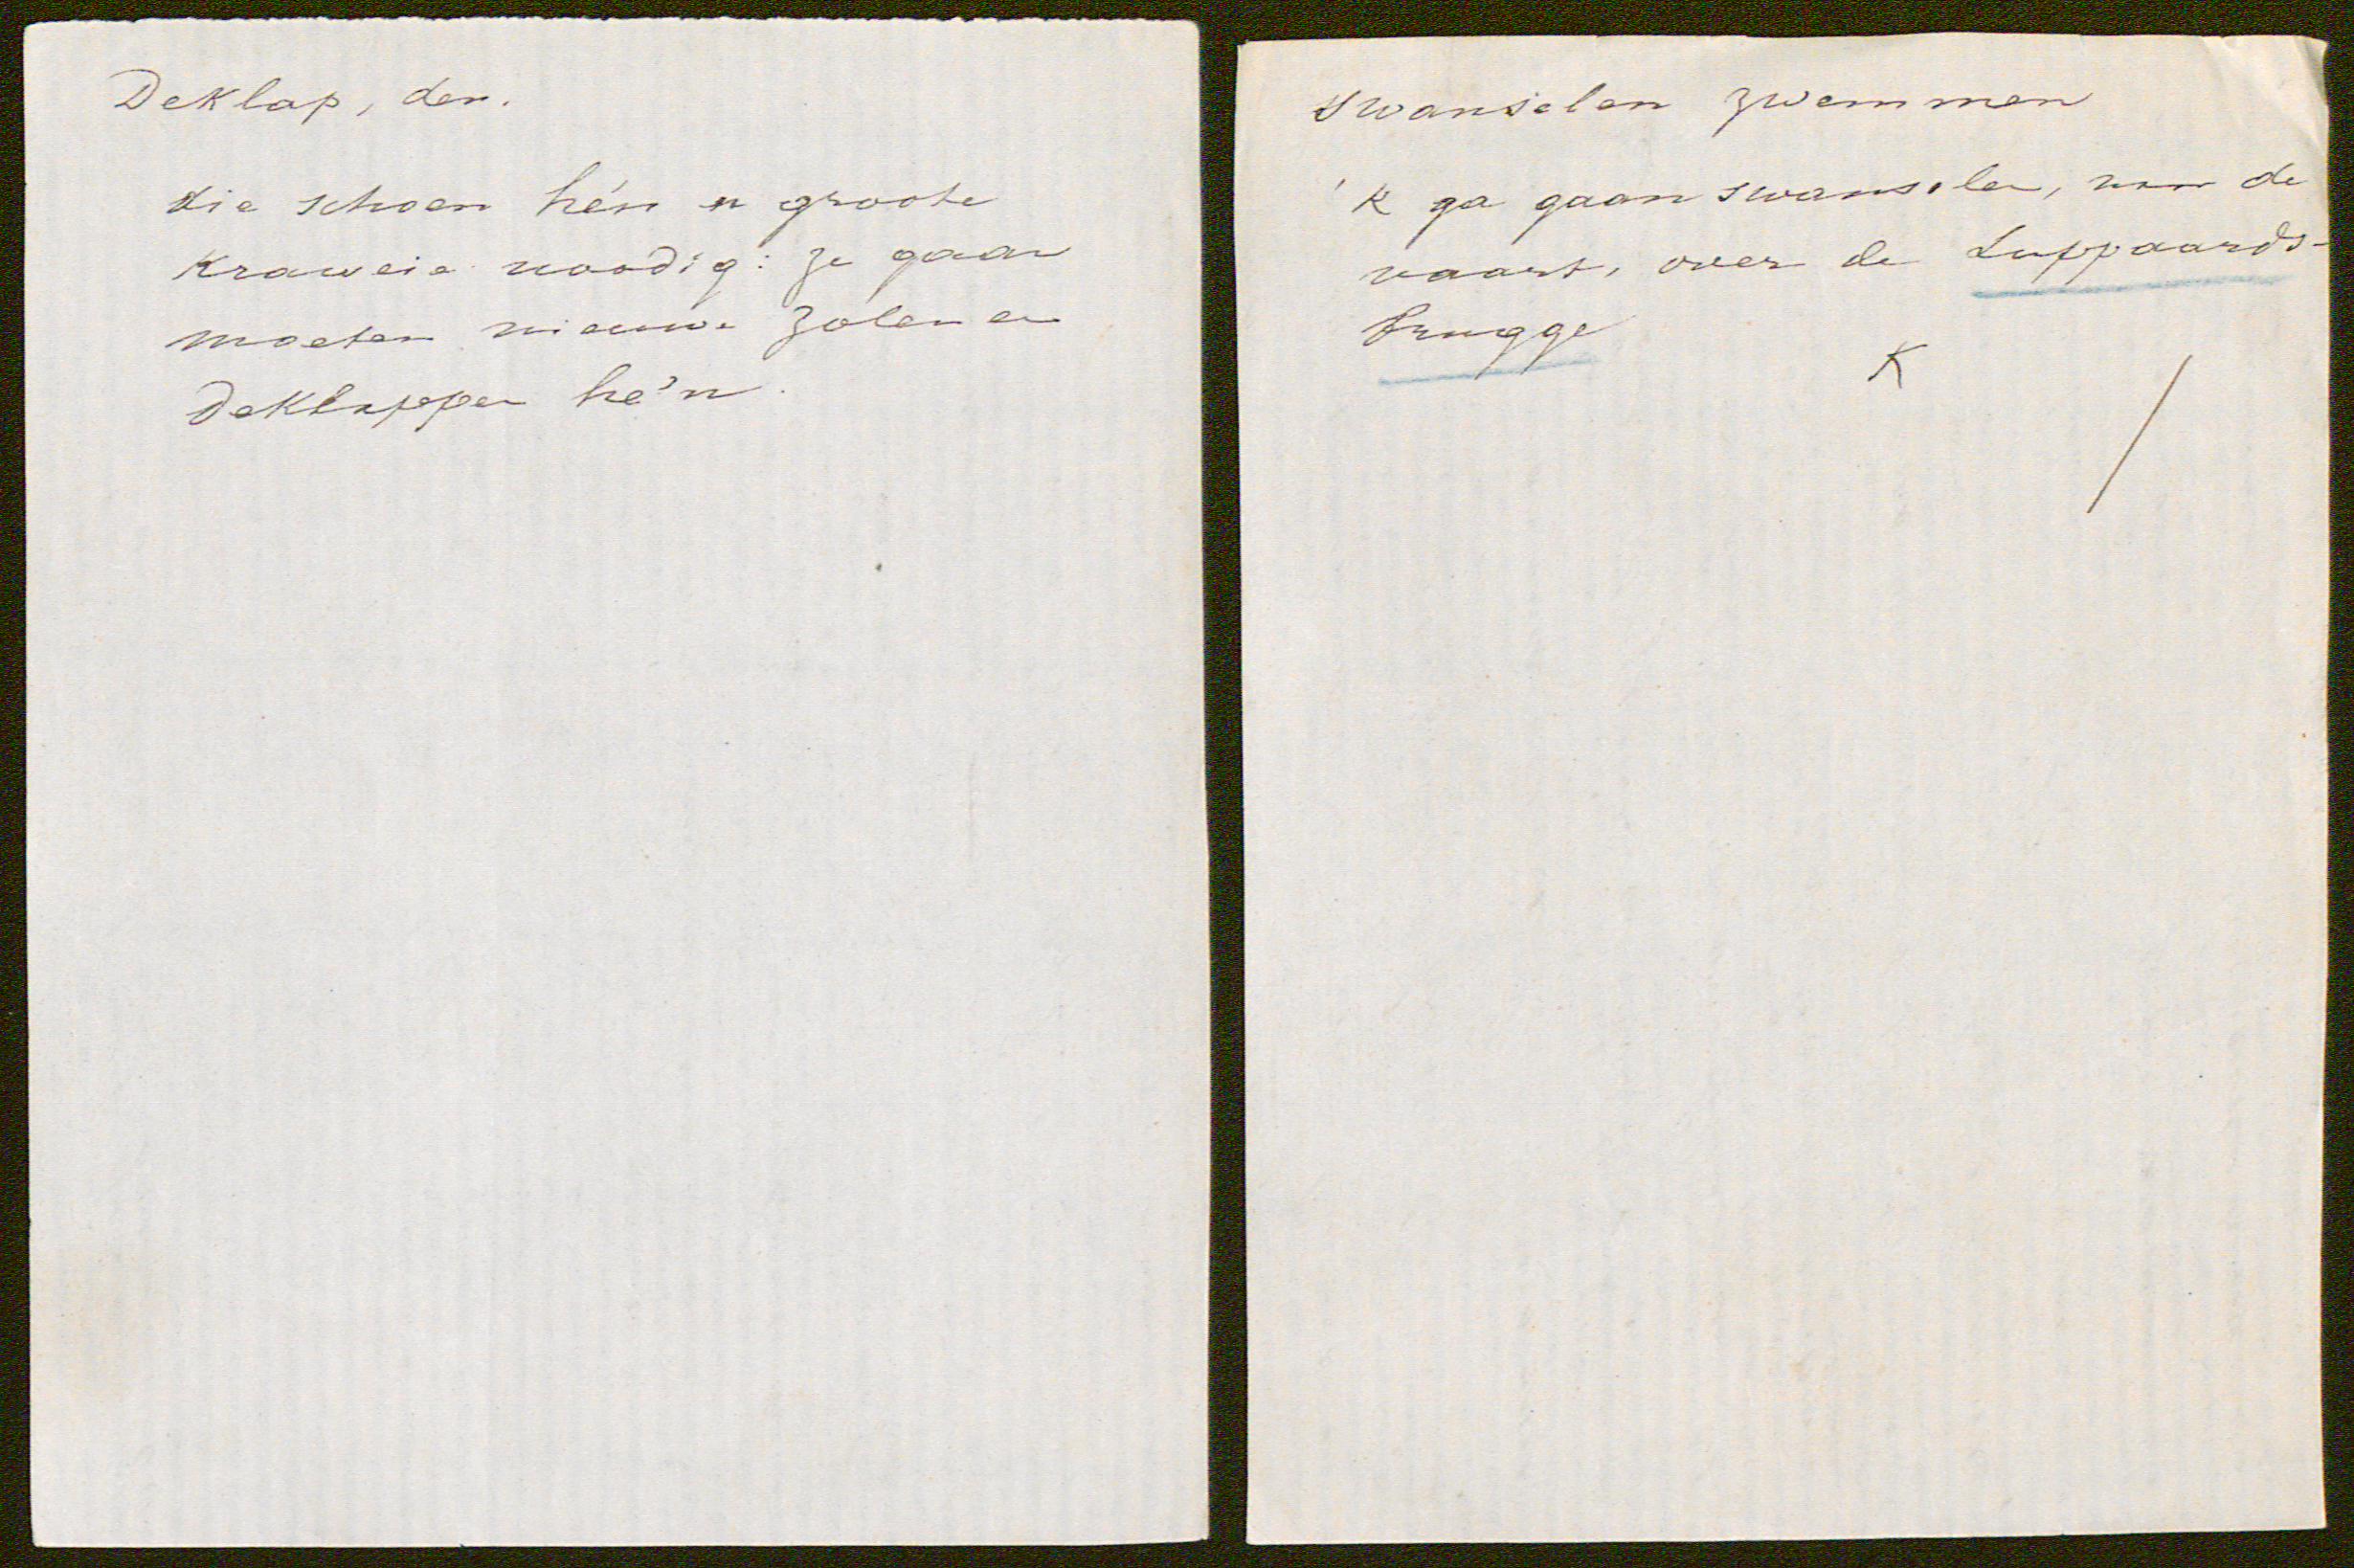 Deklap, den.
die schoen hén n groote
Kraweie noodig: ze gaan
moeten nieuwe zolen en
Deklappen hé'n.
Swanselen zwemmen
'K ga gaan swanselen, de
vaart, over de Luppaards-
brugge
K